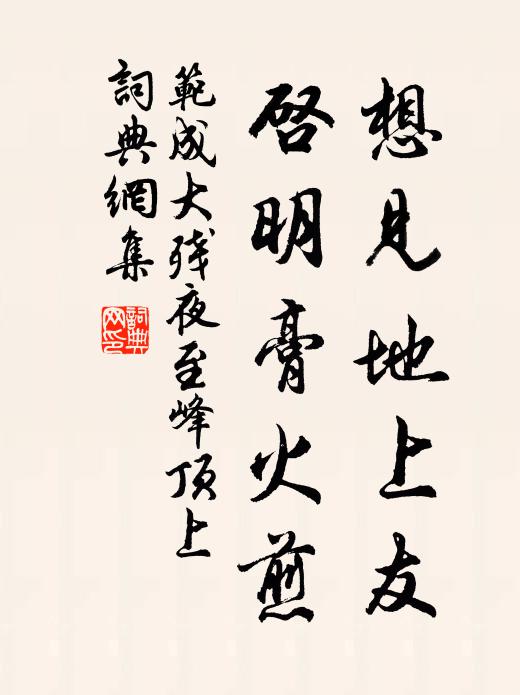 想見地上友
啓明膏火煎
範成大殘夜至峰頂上
詞典網集
詞典
网印